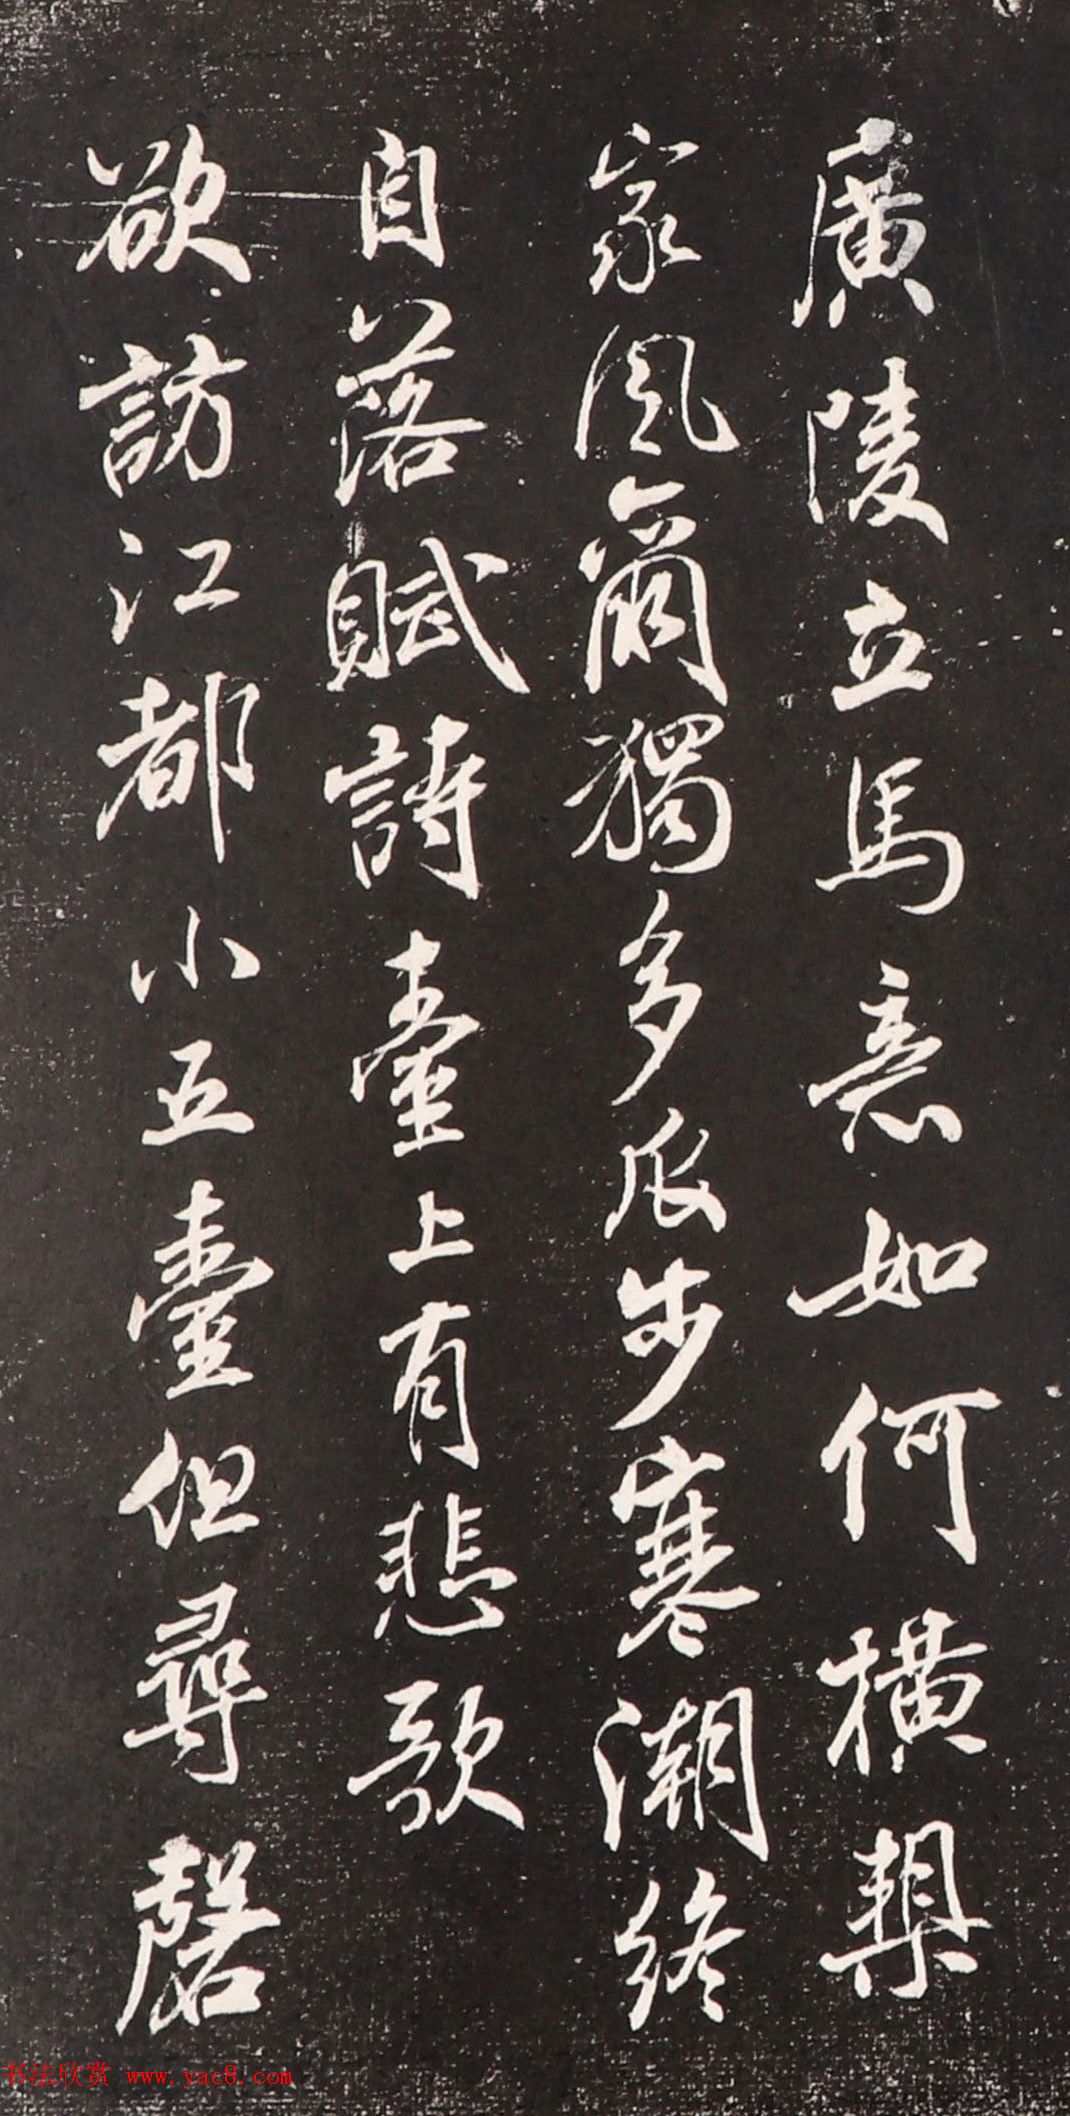 廣陵立馬意如何橫槊
家風爾獨多瓜步寒潮終
自落賦詩臺上有悲歌
欲訪江都小五臺但尋磬
书法欣赏 www.yac8.com